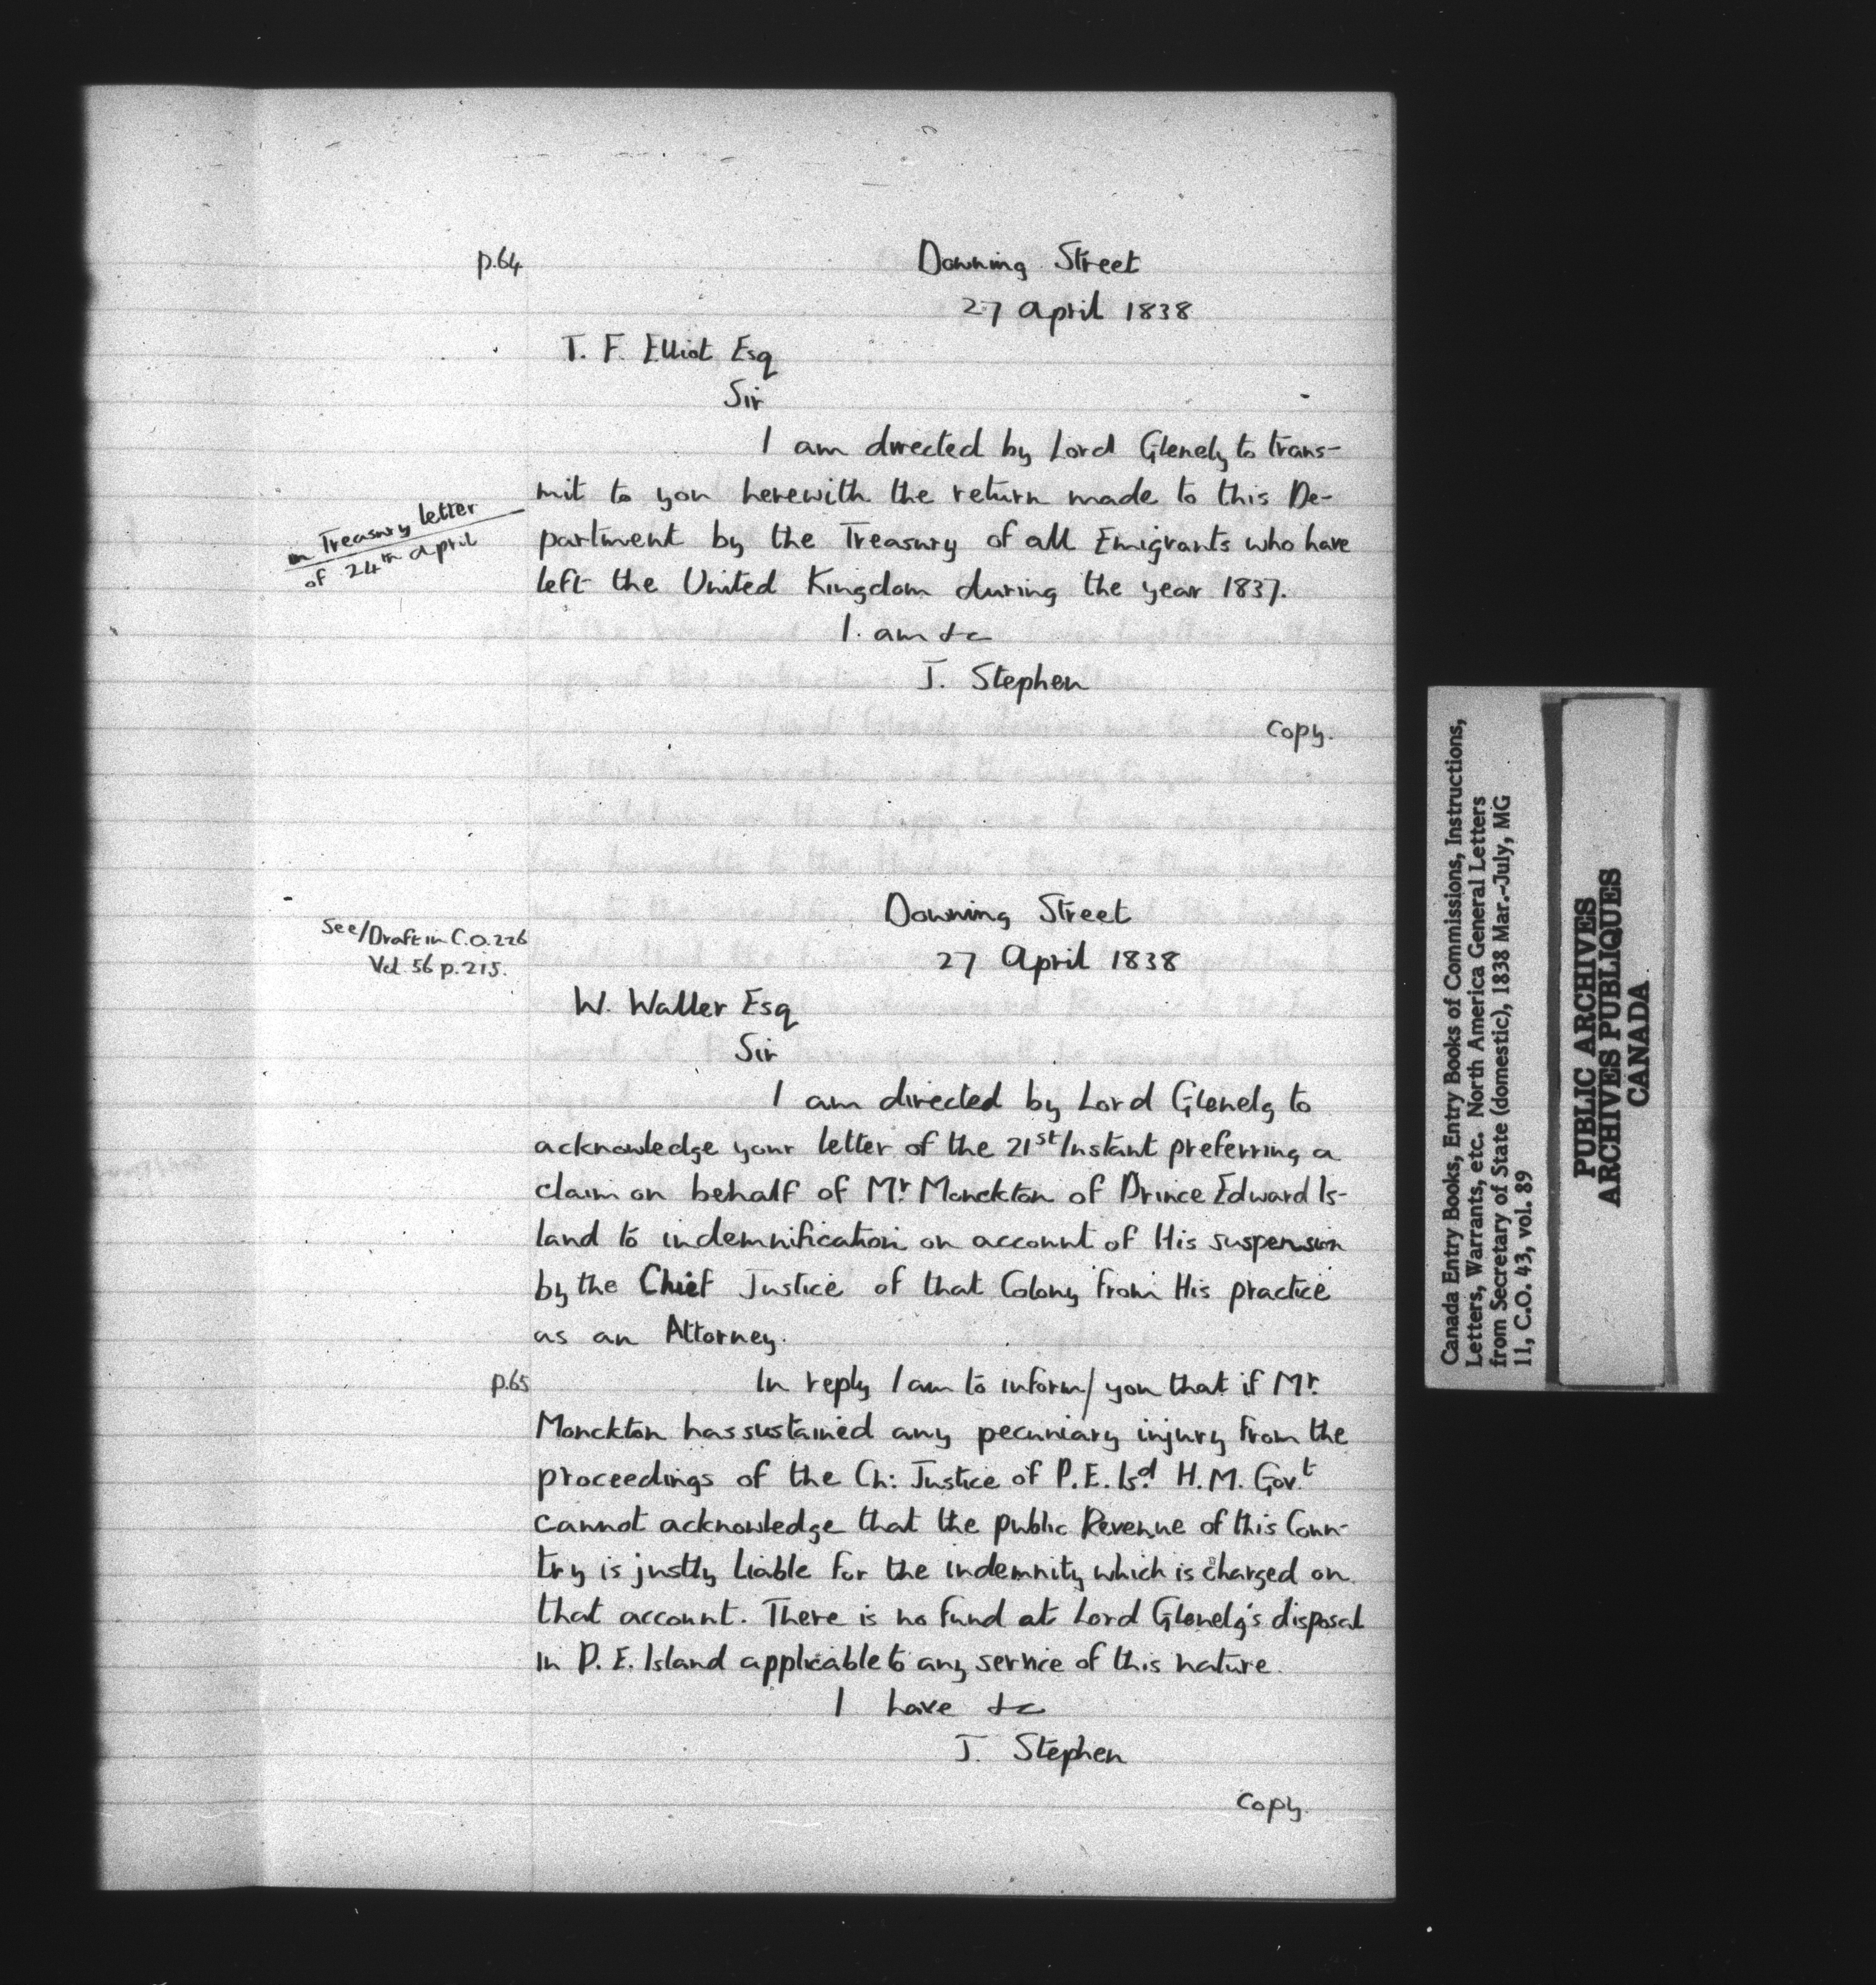 p.64
Downing Street
27 April 1838
T. F. Elliot Esq
Sir
I am directed by Lord Glenelg to trans-
mit to you herewith the return made to this De-
in Treasury letter
of 24th April
partment by the Treasury of all Emigrants who have
left the United Kingdom during the year 1837.
I am &c
J. Stephen
Copy.
See/Draft in C.O.226
Vol. 56 p.215.
Downing Street
27 April 1838
W. Waller Esq
Sir
I am directed by Lord Glenelg to
acknowledge your letter of the 21st Instant preferring a
claim on behalf of Mr Monckton of Prince Edward Is-
land to indemnification on account of His suspension
by the Chief Justice of that Colony from His practice
as an Attorney.
p.65
In reply I am to inform/you that if Mr.
Monckton has sustained any pecuniary injury from the
proceedings of the Ch: Justice of P.E. Isd. H.M. Govt
cannot acknowledge that the public Revenue of this Coun-
try is justly liable for the indemnity which is charged on
that account. There is no fund at Lord Glenelg's disposal
in P.E. Island applicable to any service of this nature.
I have &c
J. Stephen
Copy.
Canada Entry Books, Entry Books of Commissions, Instructions,
Letters, Warrants, etc. North America General Letters
from Secretary of State (domestic), 1838 Mar.-July, MG
11, C.O. 43, vol. 89
PUBLIC ARCHIVES
ARCHIVES PUBLIQUES
CANADA